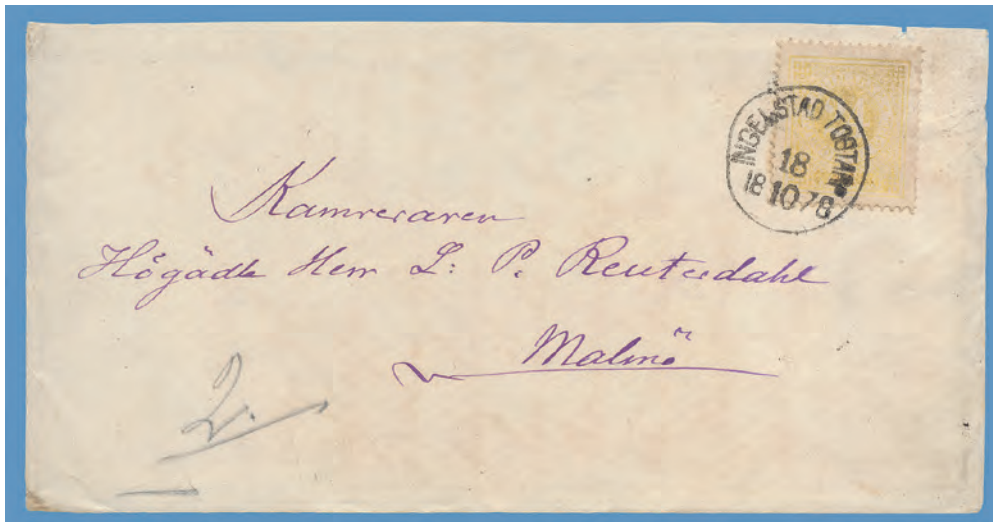 INGELSTAD TOSTARP
18
18 10 78
Kamreraren
Högädle Herr L: P. Reuterdahl
Malmö
2.